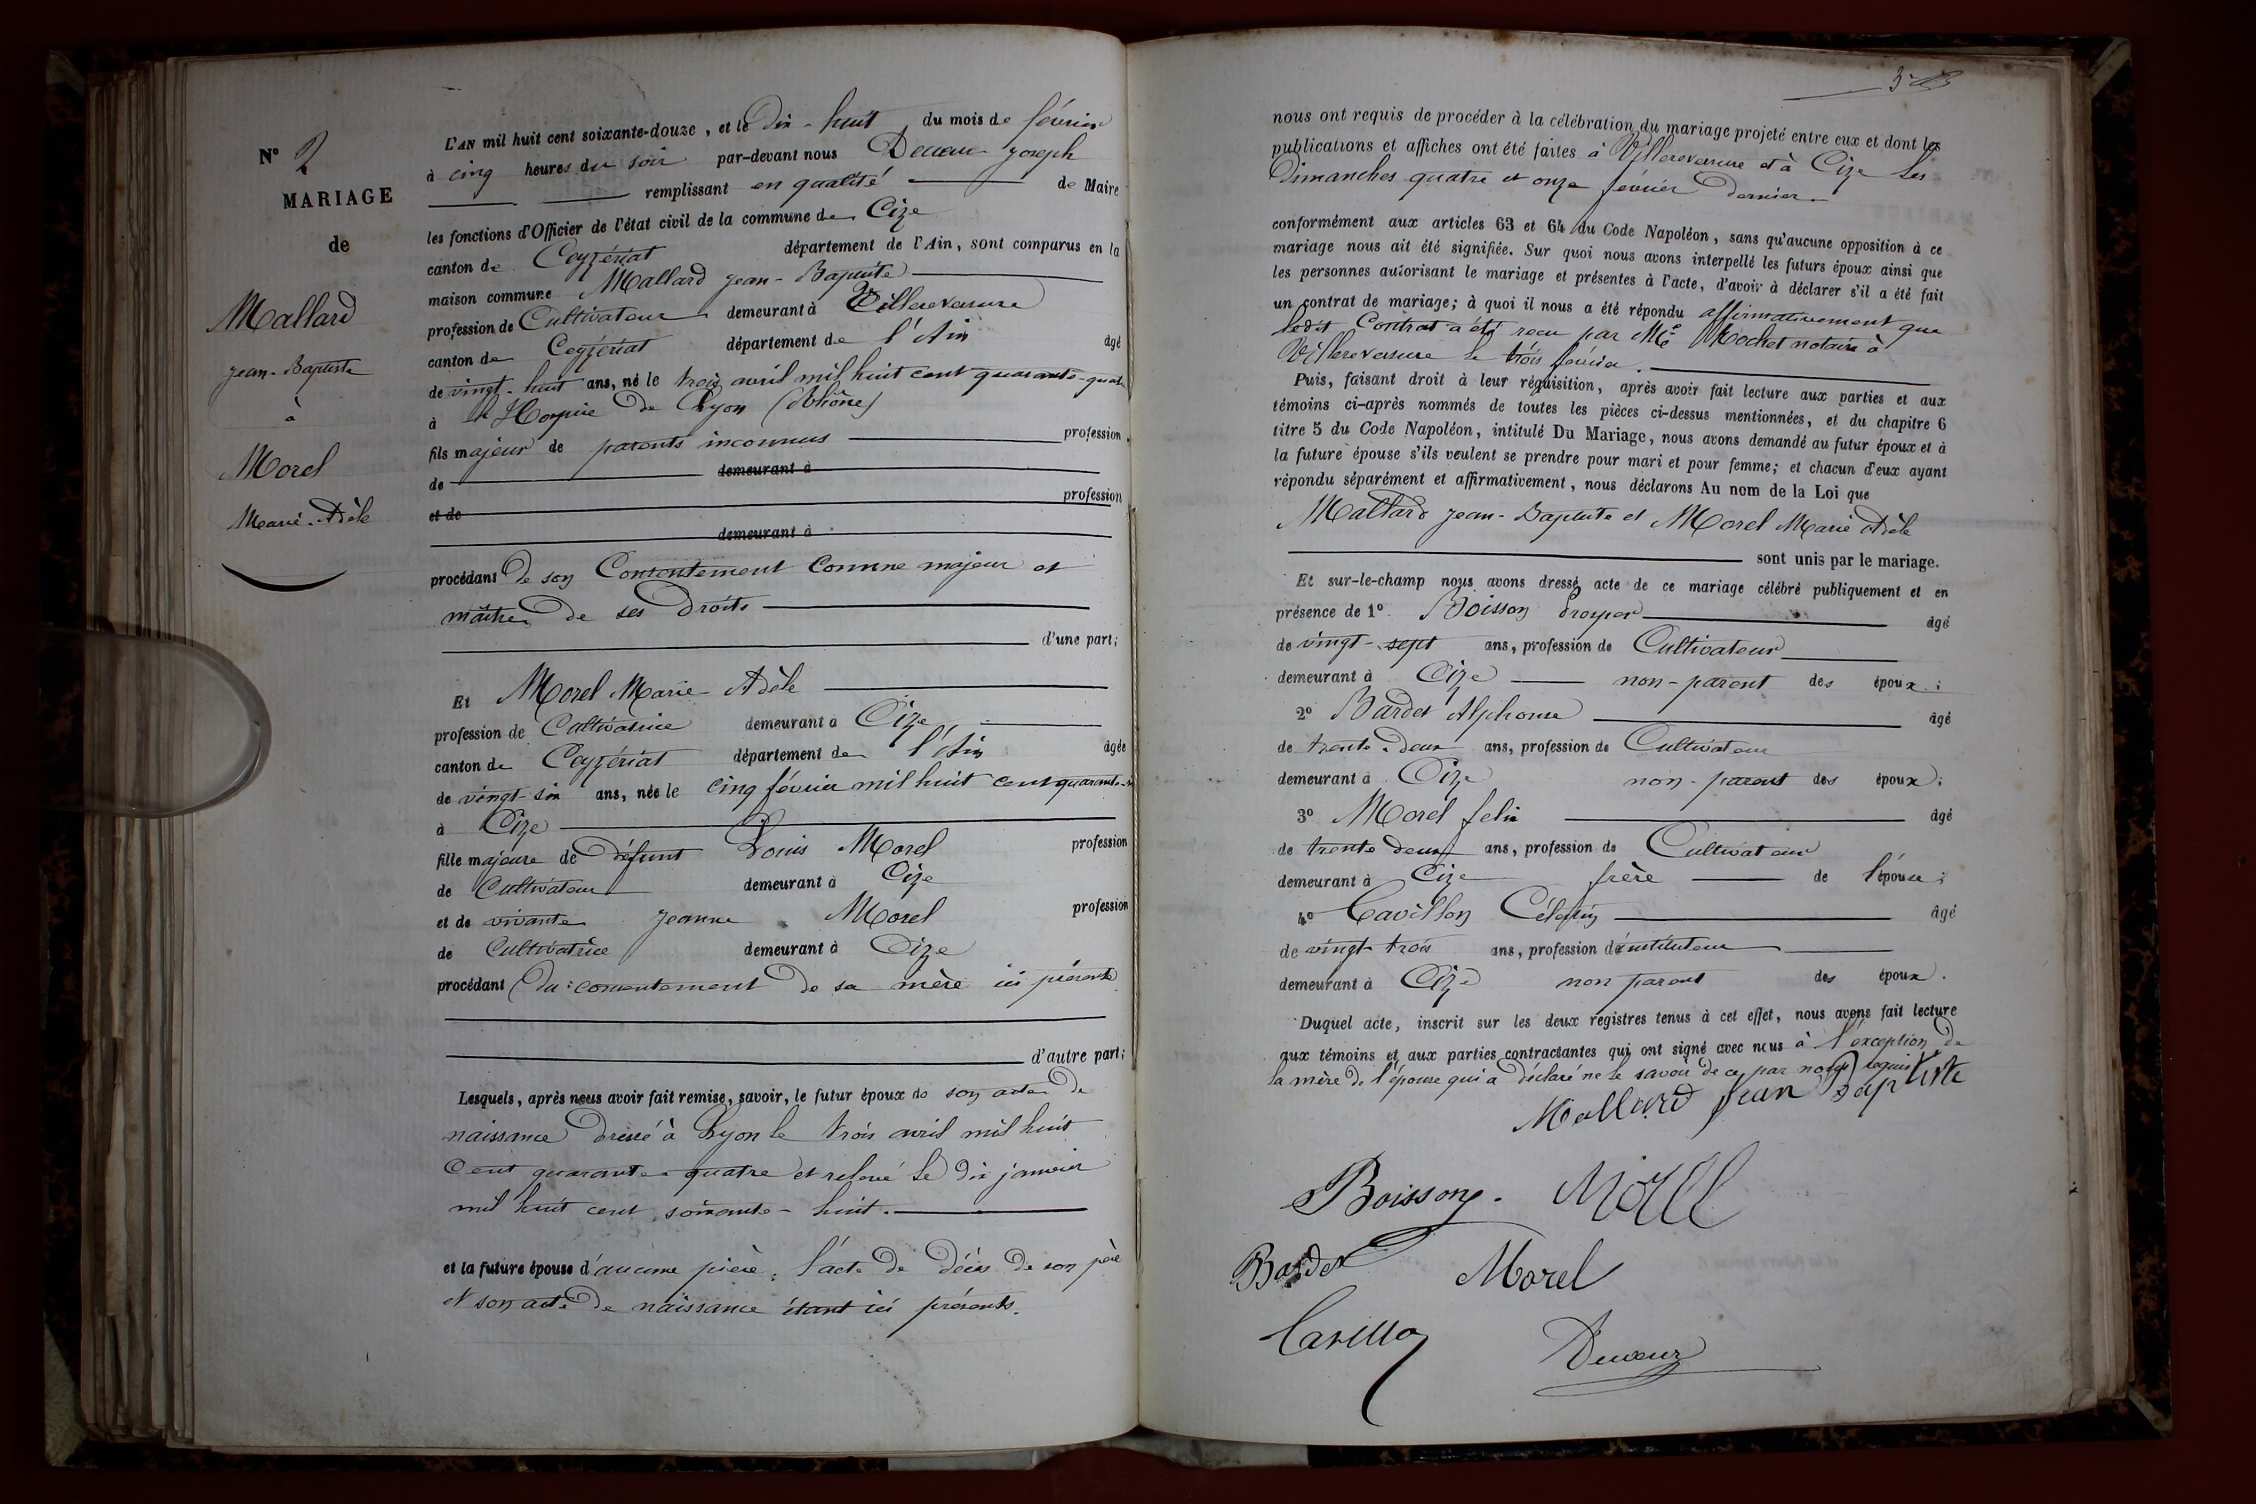 N° 2
MARIAGE
de
Mallard
Jean-Baptiste
à
Morel
Marie-Adèle
L'AN mil huit cent soixante-douze, et le dix-huit du mois de février
à cinq heures du soir par-devant nous Joseph
remplissant en qualité de Maire
les fonctions d'Officier de l'état civil de la commune de Cize
canton de Ceyzériat département de l'Ain, sont comparus en la
maison commune Mallard Jean-Baptiste
profession de Cultivateur demeurant à Villereversure
canton de Ceyzériat département de l'Ain âgé
de vingt-huit ans, né le trois avril mil huit cent quarante-quatre
à l'Hospice de Lyon (Rhône)
fils majeur de parents inconnus profession
de demeurant à
et de profession
demeurant à
procédant de son Consentement comme majeur et
maître de ses droits
d'une part;
Et Morel Marie-Adèle
profession de Cultivatrice demeurant à Cize
canton de Ceyzériat département de l'Ain âgée
de vingt-six ans, née le cinq février mil huit cent quarante-
à Cize
fille majeure de défunt Louis Morel profession
de Cultivateur demeurant à Cize
et de vivante Jeanne Morel profession
de Cultivatrice demeurant à Cize
procédant du consentement de sa mère ici présente
d'autre part;
Lesquels, après nous avoir fait remise, savoir, le futur époux de son acte de
naissance dressé à Lyon le trois avril mil huit
Cent quarante-quatre et relevé le dix janvier
mil huit cent soixante-huit.
et la future épouse d'aucune pièce, l'acte de décès de son père
et son acte de naissance étant ici présents.
nous ont requis de procéder à la célébration du mariage projeté entre eux et dont les
publications et affiches ont été faites à Villereversure et à Cize les
Dimanches quatre et onze février dernier.
conformément aux articles 63 et 64 du Code Napoléon, sans qu'aucune opposition à ce
mariage nous ait été signifiée. Sur quoi nous avons interpellé les futurs époux ainsi que
les personnes autorisant le mariage et présentes à l'acte, d'avoir à déclarer s'il a été fait
un contrat de mariage; à quoi il nous a été répondu affirmativement que
ledit Contrat a été reçu par Me Mochet notaire à
Villereversure le trois février.
Puis, faisant droit à leur réquisition, après avoir fait lecture aux parties et aux
témoins ci-après nommés de toutes les pièces ci-dessus mentionnées, et du chapitre 6
titre 5 du Code Napoléon, intitulé Du Mariage, nous avons demandé au futur époux et à
la future épouse s'ils veulent se prendre pour mari et pour femme; et chacun d'eux ayant
répondu séparément et affirmativement, nous déclarons Au nom de la Loi que
Mallard Jean-Baptiste et Morel Marie Adèle
sont unis par le mariage.
Et sur-le-champ nous avons dressé acte de ce mariage célébré publiquement et en
présence de 1° Boisson Prosper âgé
de vingt-sept ans, profession de Cultivateur
demeurant à Cize non-parent des époux;
2° Bardet Alphonse âgé
de trente-deux ans, profession de Cultivateur
demeurant à Cize non-parent des époux;
3° Morel felix âgé
de trente deux ans, profession de Cultivateur
demeurant à Cize frère de l'épouse;
4° Cavillon Célestin âgé
de vingt-trois ans, profession d'instituteur
demeurant à Cize non parent des époux.
Duquel acte, inscrit sur les deux registres tenus à cet effet, nous avons fait lecture
aux témoins et aux parties contractantes qui ont signé avec nous à l'exception de
la mère de l'épouse qui a déclaré ne le savoir de ce par nous requis
Mallard Jean Baptiste
Boisson. Morel
Bardet Morel
Cavillon